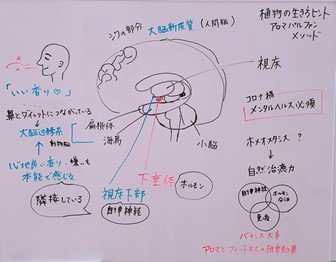 植物の生きるヒント
アロマバルファン
メソッド
シワの部分 大脳新皮質 (人間脳)
「いい香り♡」
鼻とダイレクトにつながっている
→大脳辺縁系
動物脳
扁桃体
海馬
心地良い香り・嫌いも
本能で感じる
隣接している
視床下部
自律神経
下垂体
ホルモン
小脳
視床
コロナ禍
メンタルヘルス必須
ホメオスタシス ?
↓
自然治癒力
自律神経
ホルモン
免疫
バランス大事
アロマとフィトネスの相乗効果